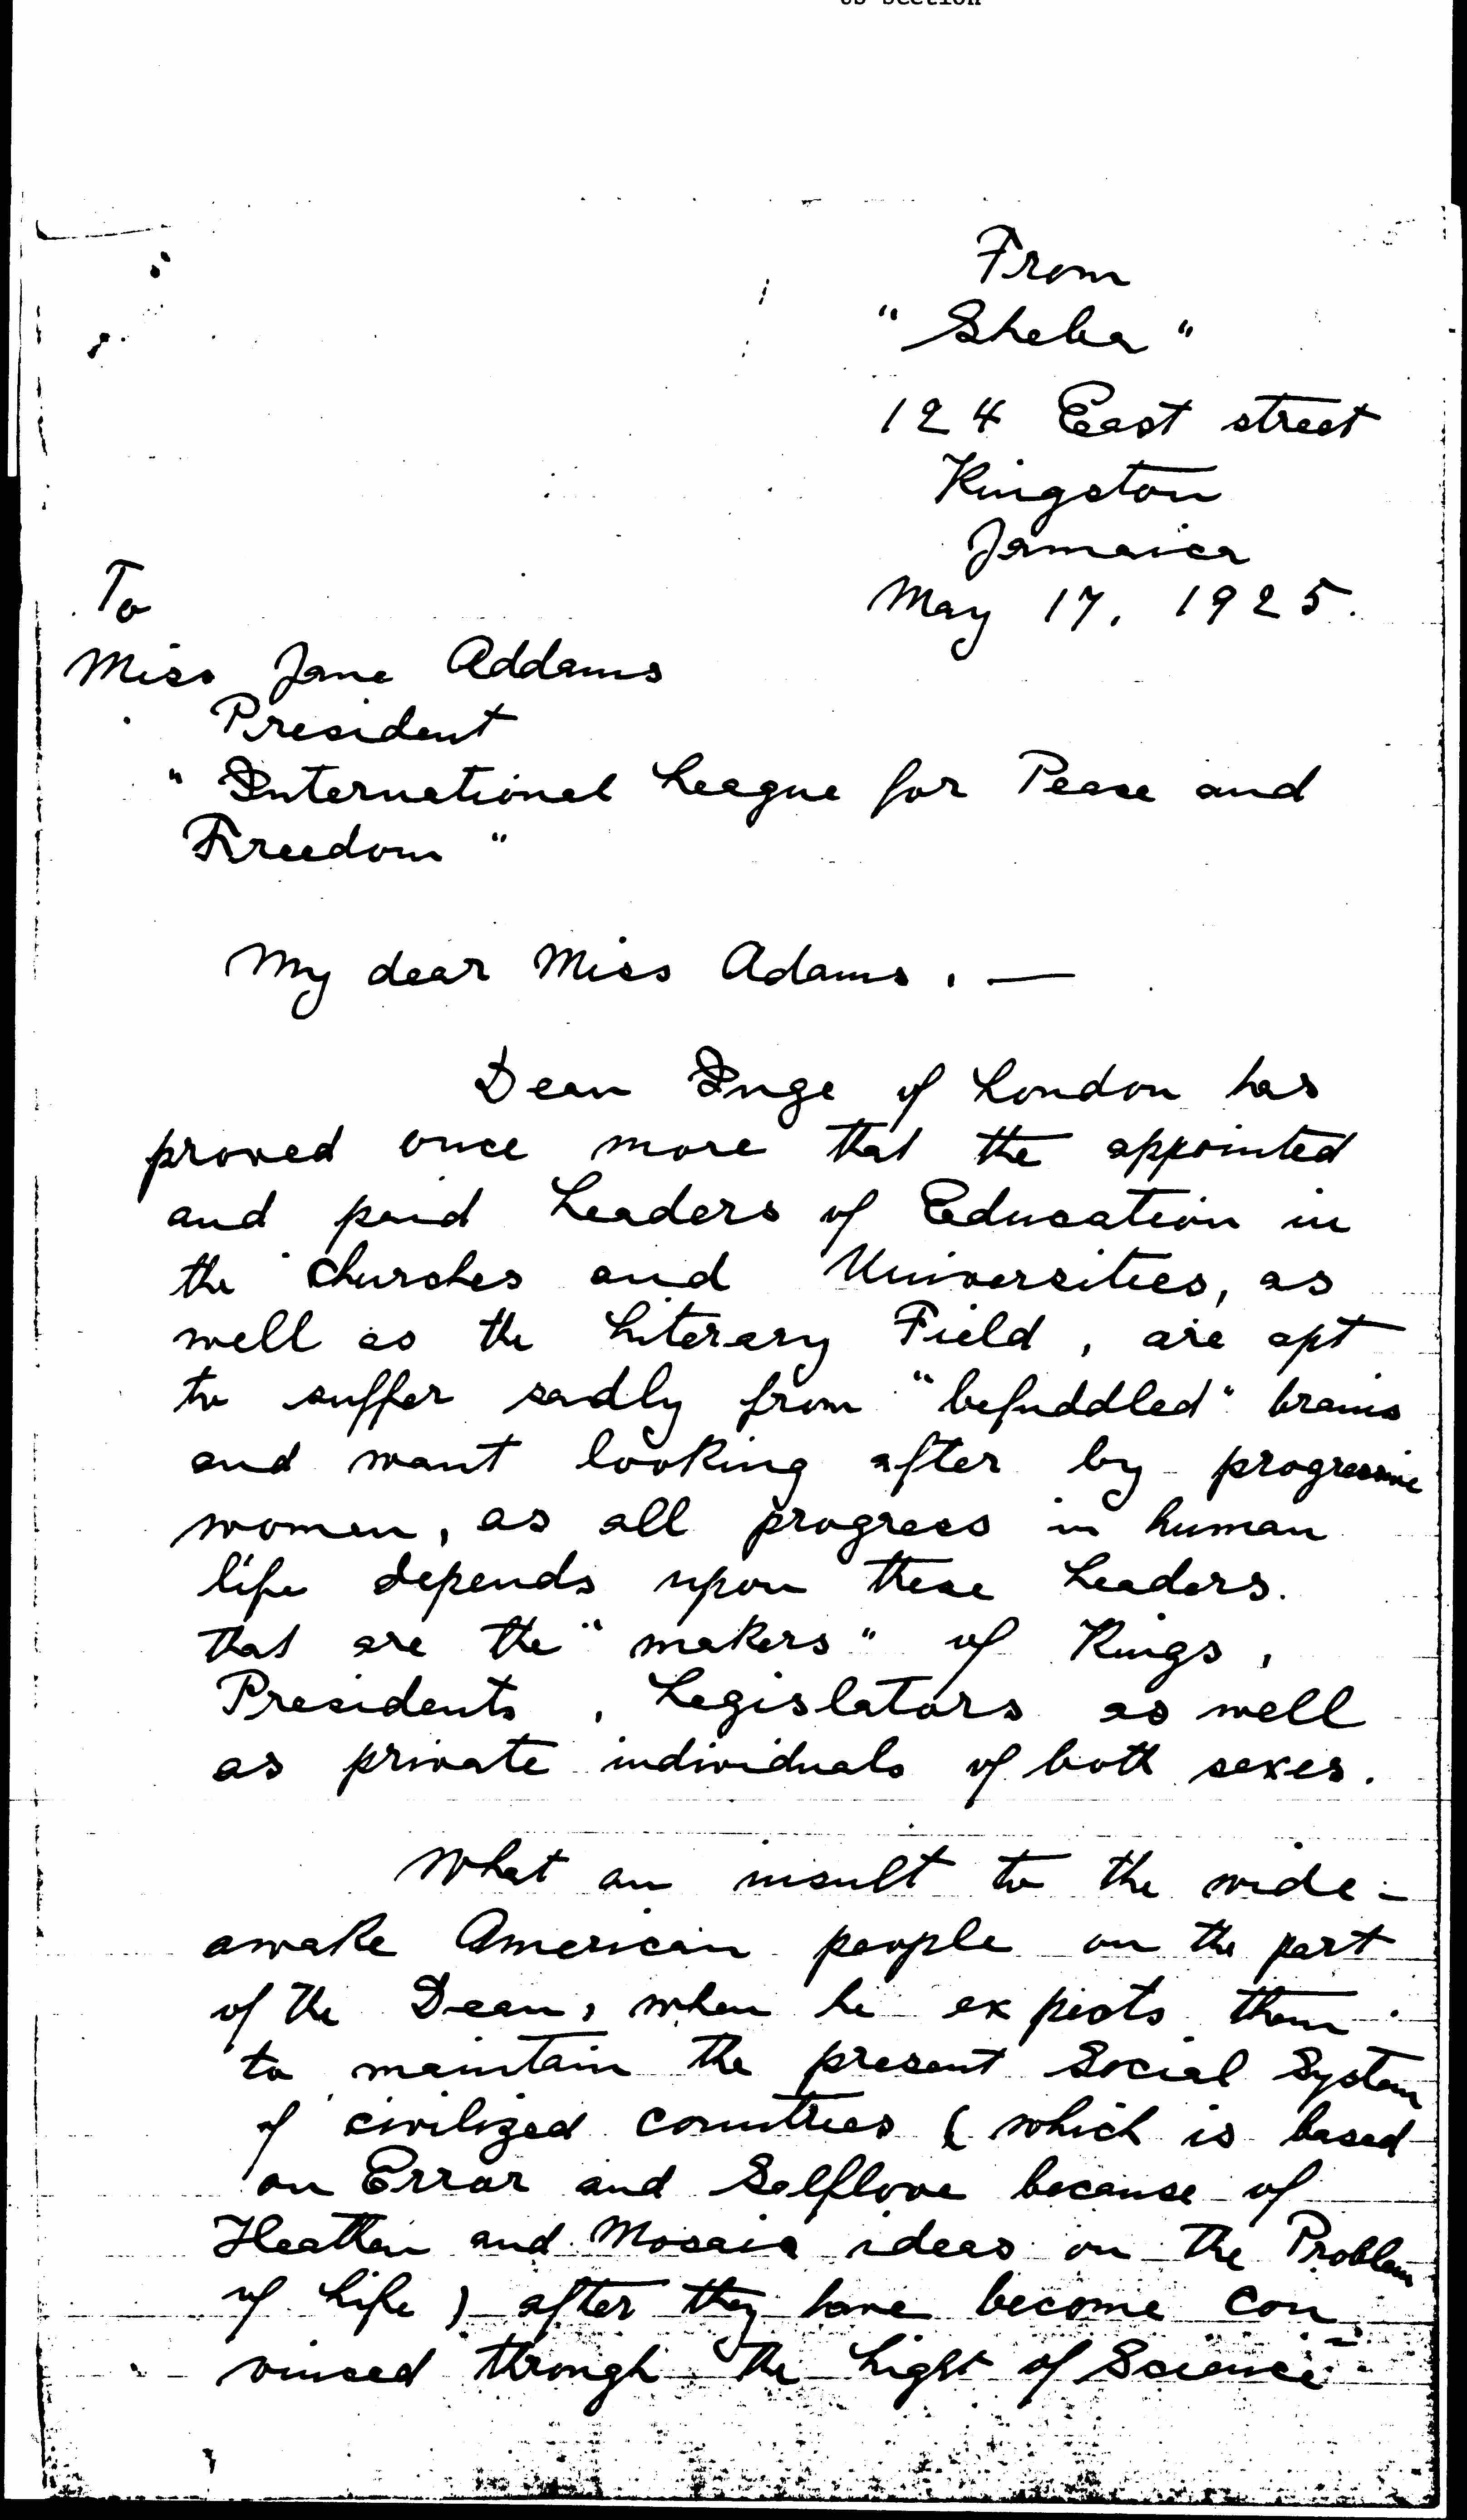 From
" Sheba "
124 East street
Kingston
Jamaica
May 17, 1925.
To
Miss Jane Addams
President
" International League for Peace and
Freedom "
My dear Miss Adams, —
Dean Inge of London has
proved once more that the appointed
and paid Leaders of Education in
the churches and Universities, as
well as the Literary Field, are apt
to suffer sadly from "befuddled" brains
and want looking after by progressive
women, as all progress in human
life depends upon these Leaders.
that are the "makers" of Kings,
Presidents, Legislators as well
as private individuals of both sexes.
What an insult to the wide-
awake American people on the part
of the Dean, when he expects them
to maintain the present Social System
of civilized countries (which is based
on Error and Selflove because of
Heathen and Mosaic ideas on the Problem
of Life) after they have become con-
vinced through the Light of Science